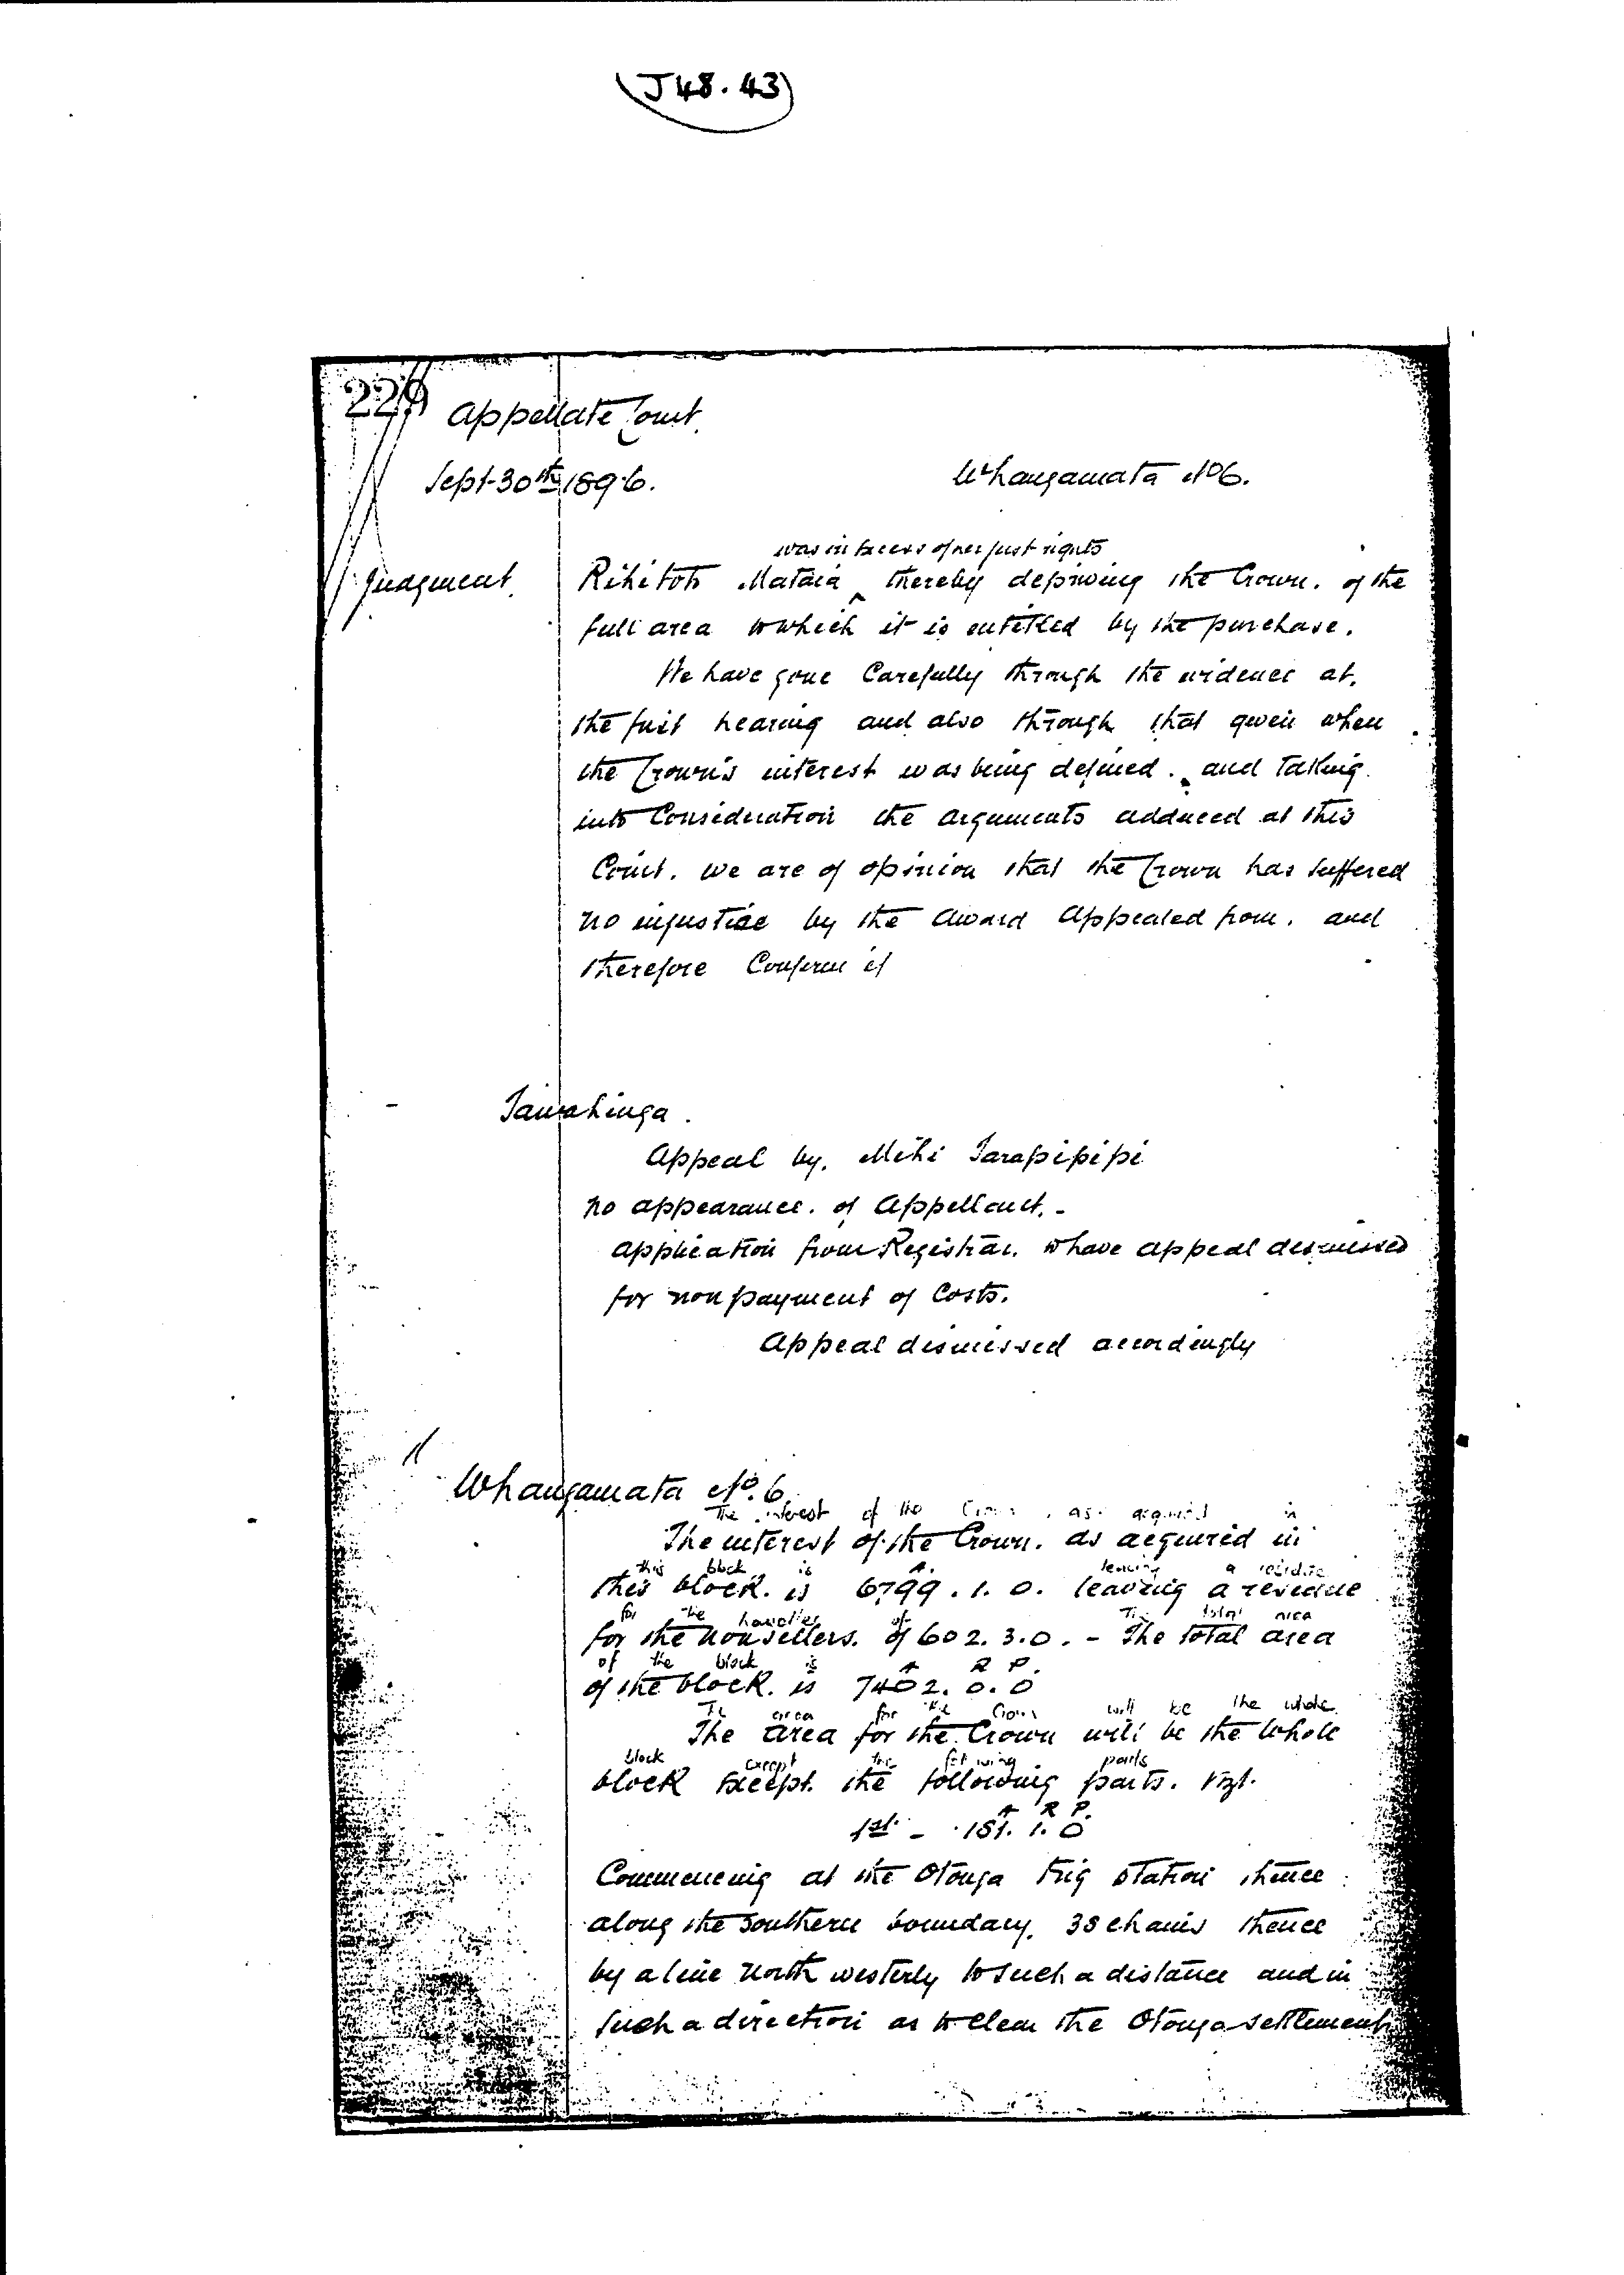 (J48.43)
229
Appellate Court.
Sept 30th 1896.
Whangamata No 6.
was in excess of her just rights
Judgment.
Rihitoto Mataia ^ thereby depriving the Crown. of the
full area to which it is entitled by the purchase.
We have gone Carefully through the evidence at.
the first hearing and also through that given when
the Crown's interest was being defined. and taking
into Consideration the arguments adduced at this
Court. we are of opinion that the Crown has suffered
no injustice by the Award Appealed from. and
therefore Confirm it
Tauwahinga.
Appeal by. Mihi Tarapipipi
no appearance. of Appellant. -
Application from Registrar. to have appeal dismissed
for non payment of Costs.
Appeal dismissed accordingly
Whangamata No. 6
The interest of the Crown as acquired in
The interest of the Crown. as acquired in
this block is A. leaving a residue
this block. is 6799. 1. 0. leaving a residue
for the of The total area
for the non sellers. of 602. 3. 0. - The total area
of the block is A R P.
of the block. is 7402. 0. 0
The area for the Crown will be the whole
The area for the Crown will be the Whole
block except the following parts
block except. the following parts. vizt.
A R P.
1st - 151. 1. 0
Commencing at the Otonga Trig station thence
along the Southern boundary. 38 chains thence
by a line North westerly to such a distance and in
such a direction as to clear the Otonga settlement